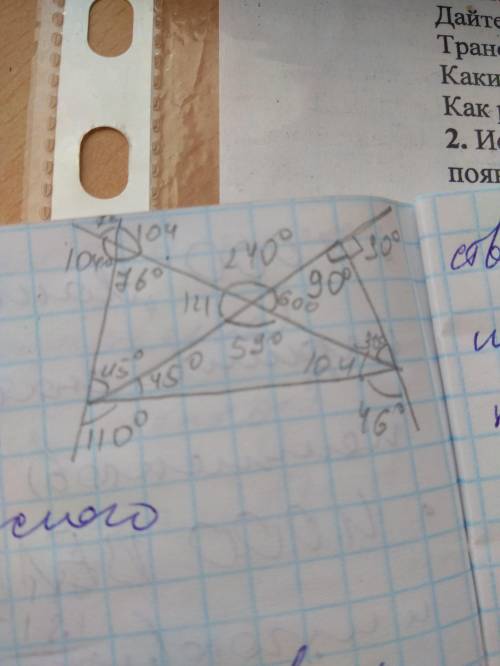 Дайте
Тран
Каки
Как
2. Ис
появ
104
104°
76°
240°
90°
30°
121
60°
59°
45°
45°
104
30°
110°
46°
ств
ского